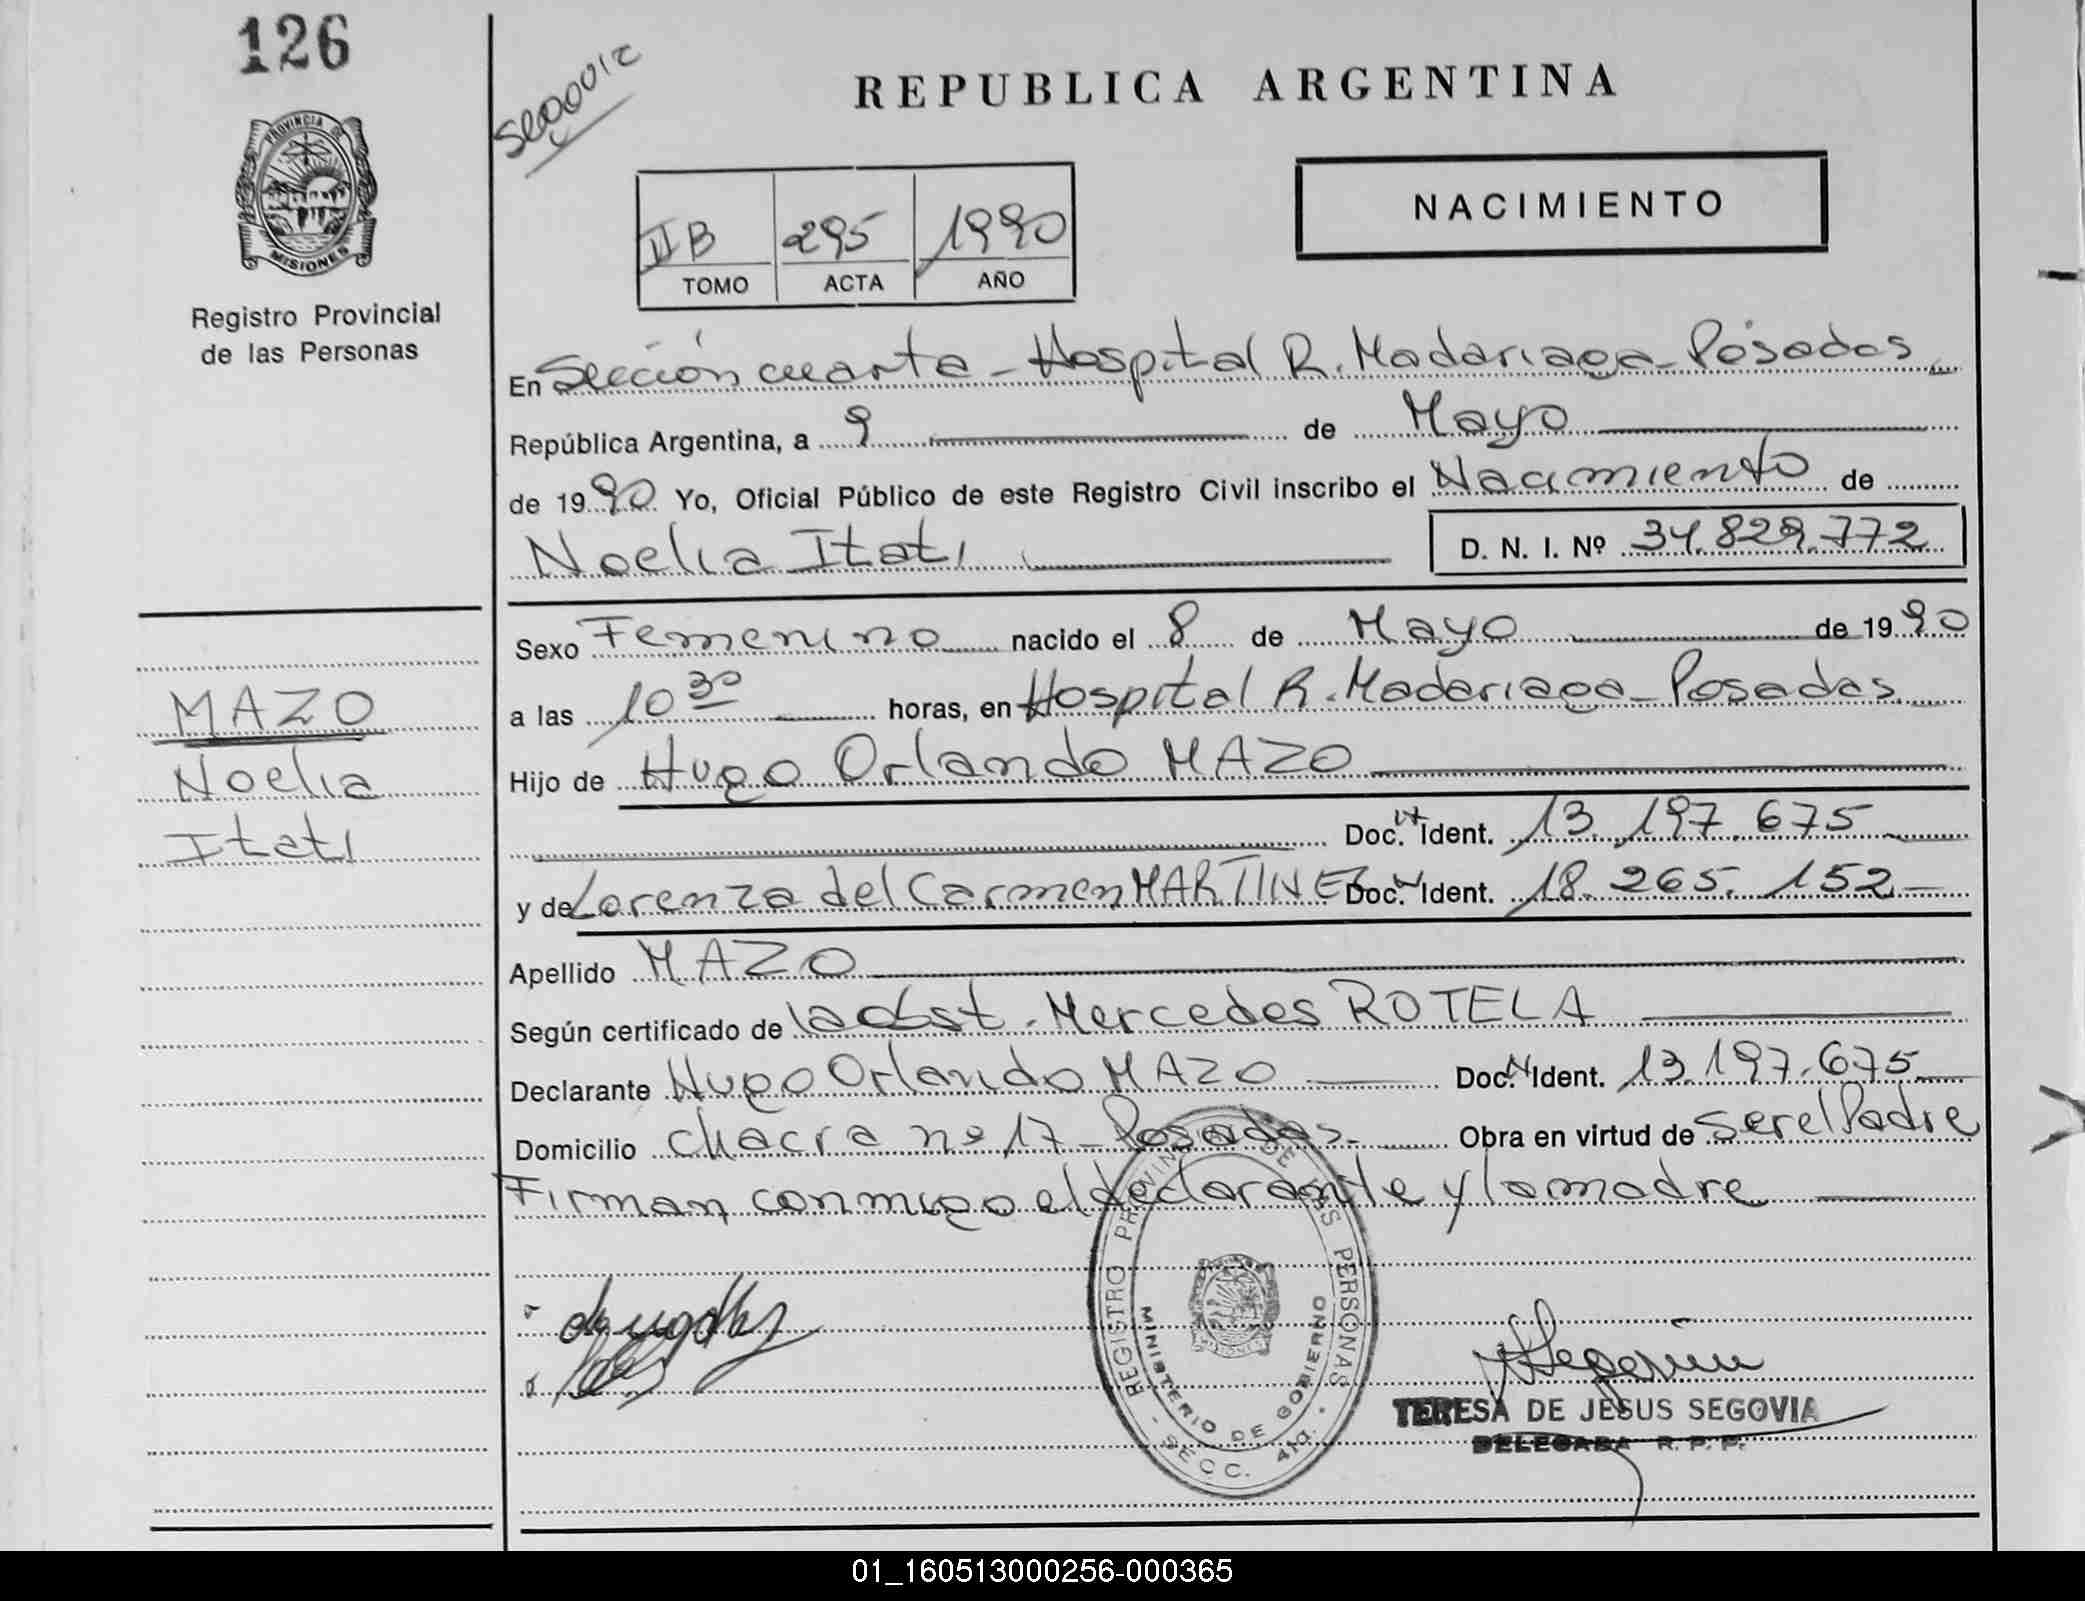 126
Secc 0012
REPUBLICA ARGENTINA
PROVINCIA DE
MISIONES
Registro Provincial
de las Personas
NACIMIENTO
II B 295 1990
TOMO ACTA AÑO
En Sección cuarta - Hospital R. Madariaga - Posadas
República Argentina, a 9 de Mayo
de 1990 Yo, Oficial Público de este Registro Civil inscribo el Nacimiento de
Noelia Itatí D. N. I. Nº 34.829.772
Sexo Femenino nacido el 8 de Mayo de 1990
a las 10 30 horas, en Hospital R. Madariaga - Posadas
Hijo de Hugo Orlando MAZO
Doc. Ident. 13.197.675
y de Lorenza del Carmen MARTINEZ Doc. Ident. 18.265.152
Apellido MAZO
Según certificado de la obst. Mercedes ROTELA
Declarante Hugo Orlando MAZO Doc. Ident. 13.197.675
Domicilio Chacra nº 17 - Posadas Obra en virtud de ser el Padre
Firman conmigo el declarante y la madre
MAZO
Noelia
Itatí
REGISTRO PROVINCIAL DE LAS PERSONAS
MINISTERIO DE GOBIERNO
- SECC. 4ta. -
TERESA DE JESUS SEGOVIA
DELEGADA R. P. P.
01_160513000256-000365